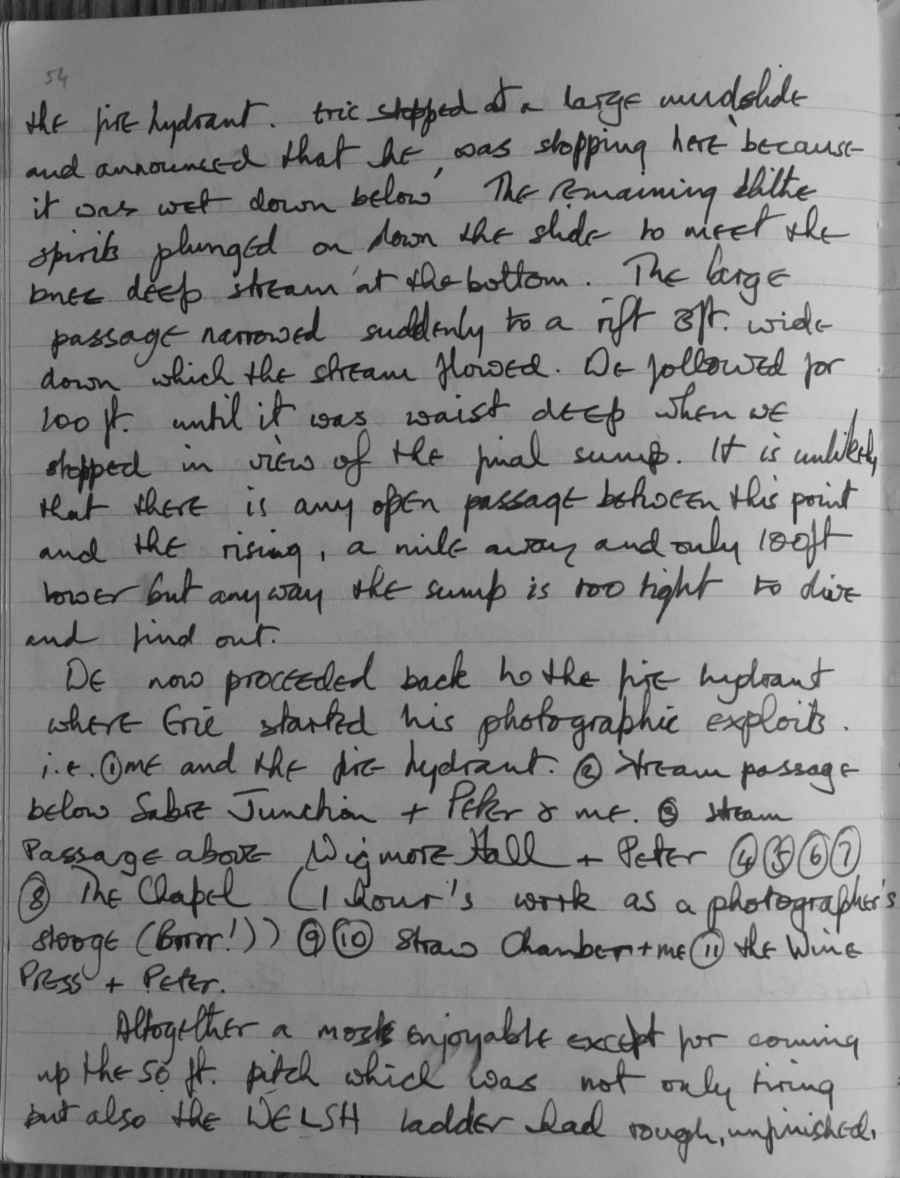 54
the fire hydrant. Eric stopped at a large mudslide
and announced that he 'was stopping here because
it was wet down below' The remaining blithe
spirits plunged on down the slide to meet the
knee deep stream at the bottom. The large
passage narrowed suddenly to a rift 3ft. wide
down which the stream flowed. We followed for
100 ft. until it was waist deep when we
stopped in view of the final sump. It is unlikely
that there is any open passage between this point
and the rising, a mile away and only 100ft
lower but anyway the sump is too tight to dive
and find out.
We now proceeded back to the fire hydrant
where Eric started his photographic exploits.
i.e. ① me and the fire hydrant. ② Stream passage
below Sabre Junction + Peter & me. ③ stream
Passage above Wigmore Hall + Peter ④ ⑤ ⑥ ⑦
⑧ The Chapel (1 hour's work as a photographer's
stooge (Brrrr!)) ⑨ ⑩ Straw Chamber + me ⑪ the Wine
Press + Peter.
Altogether a most enjoyable except for coming
up the 50 ft. pitch which was not only tiring
but also the WELSH ladder had rough, unfinished,